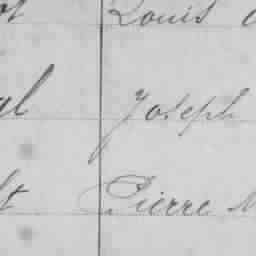 ot Louis
al Joseph
lt Pierre